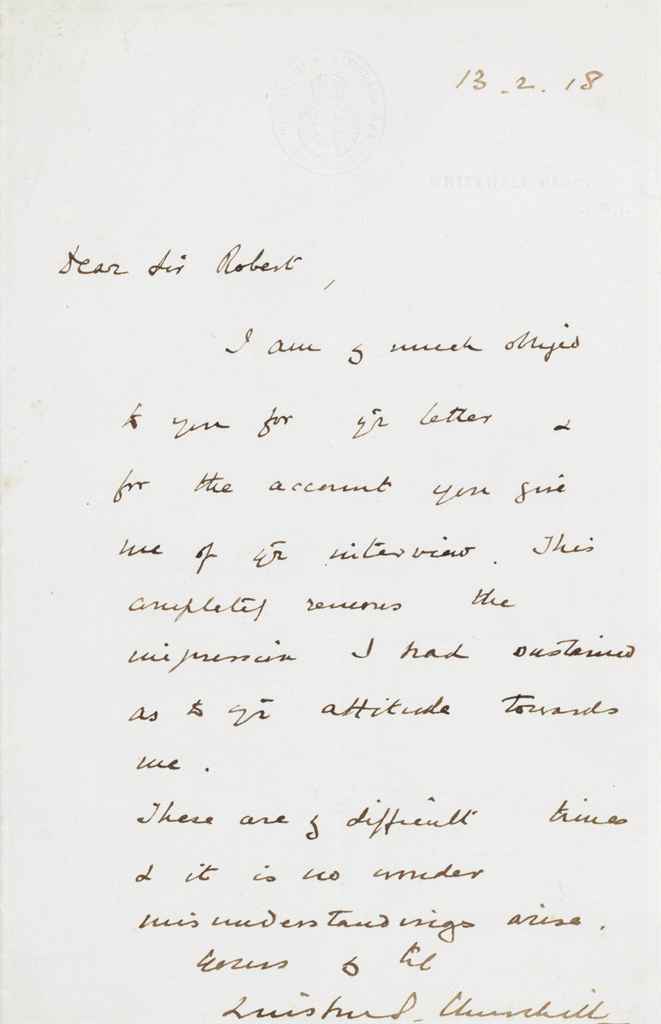 13.2.18
WHITEHALL PLACE,
S.W.
Dear Sir Robert,
I am vy much obliged
to you for yr letter &
for the account you give
me of yr interview. This
completely removes the
impression I had sustained
as to yr attitude towards
me.
These are vy difficult times
& it is no wonder
misunderstandings arise.
Yours
Winston S. Churchill